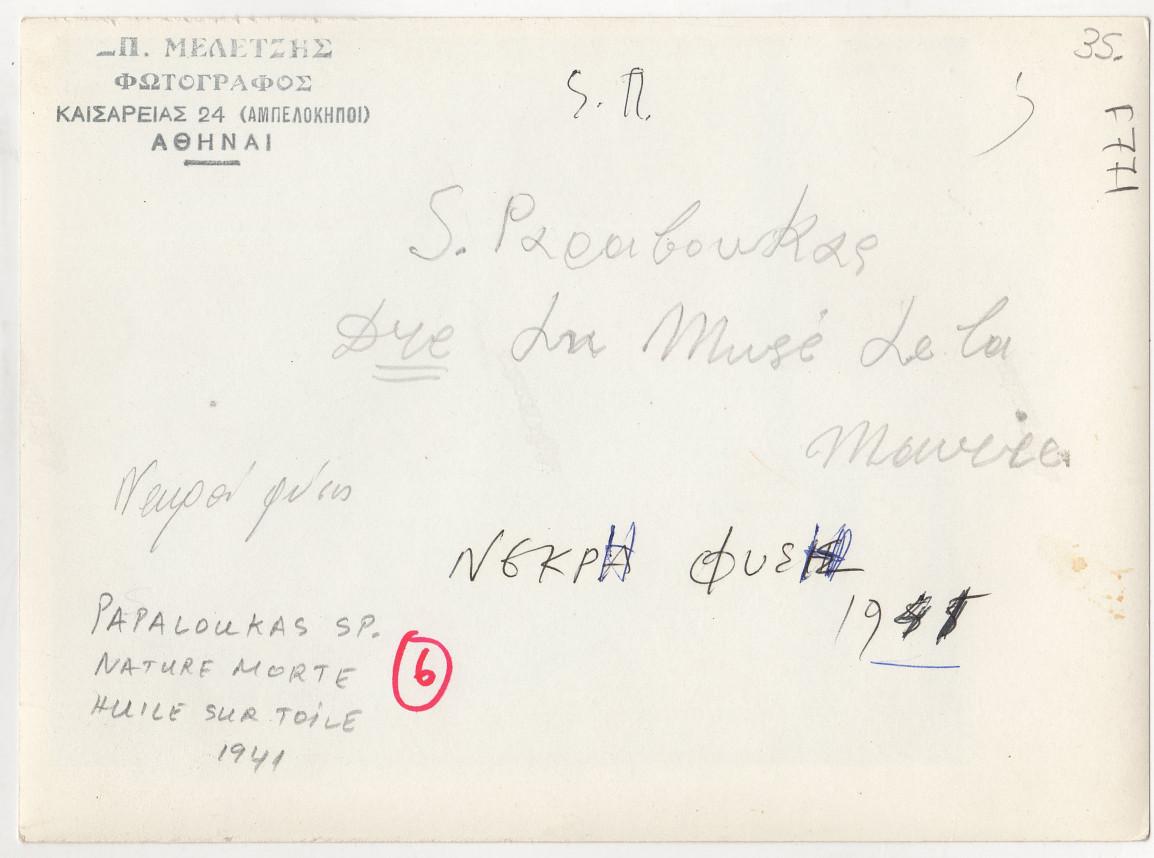 Π. ΜΕΛΕΤΖΗΣ
ΦΩΤΟΓΡΑΦΟΣ
ΚΑΙΣΑΡΕΙΑΣ 24 (ΑΜΠΕΛΟΚΗΠΟΙ)
ΑΘΗΝΑΙ
S. Π.
35.
F771
S.
du Musé de la
Νεκρά φύσις
ΝΕΚΡΗ ΦΥΣΗ
19
PAPALOUKAS SP.
NATURE MORTE
HUILE SUR TOILE
1941
6